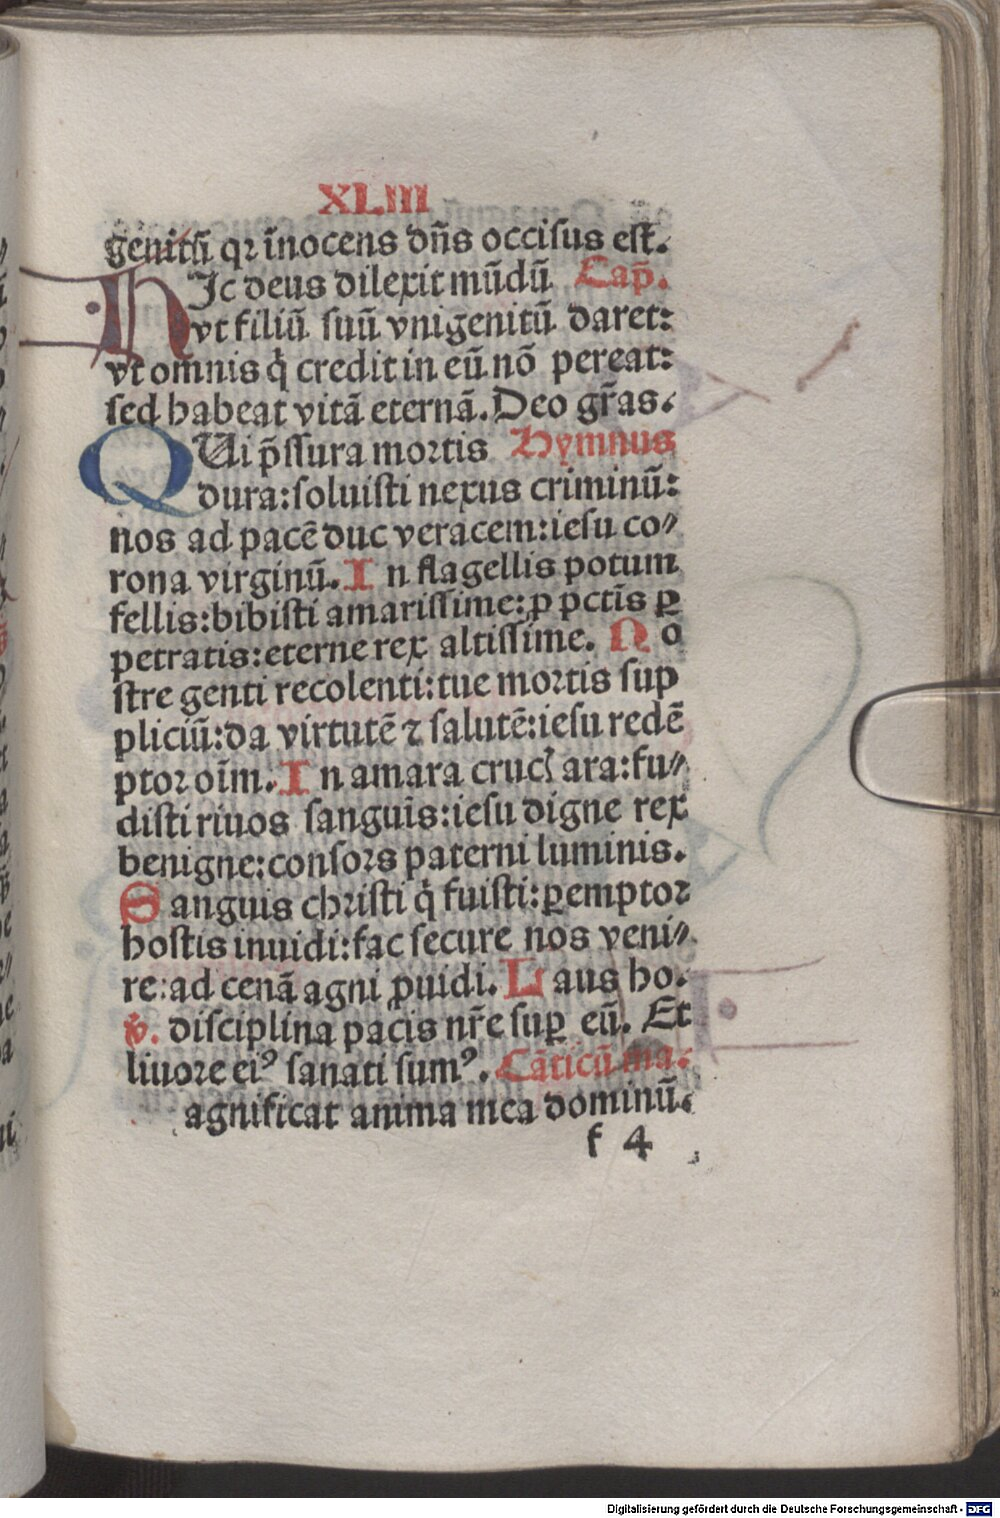 XLIII
genitũ qꝛ ĩnocens dñs occisus est.
HJc deus dilexit mũdũ Cap̃.
vt filiũ suũ vnigenitũ daret:
vt omnis q̇ credit in eũ nõ pereat:
sed habeat vitã eternã. Deo gr̃as.
QUi p̃ssura mortis Hymnus
dura: soluisti nexus criminũ:
nos ad pacẽ duc veracem: iesu co⸗
rona virginũ. I n flagellis potum
fellis: bibisti amarissime: ꝓ pctĩs ꝑ
petratis: eterne rex altissime. N o
stre genti recolenti: tue mortis sup
pliciũ: da virtutẽ ⁊ salutẽ: iesu redẽ
ptor oĩm. I n amara crucꝭ ara: fu⸗
disti riuos sanguĩs: iesu digne rex
benigne: consors paterni luminis.
S anguis christi q̇ fuisti: ꝑemptor
hostis inuidi: fac secure nos veni⸗
re: ad cenã agni ꝓuidi. L aus ho.
℣. disciplina pacis nr̃e suꝑ eũ. Et
liuore eiꝰ sanati sumꝰ. Cãticũ ma.
agnificat anima mea dominũ.
f 4
Digitalisierung gefördert durch die Deutsche Forschungsgemeinschaft - DFG